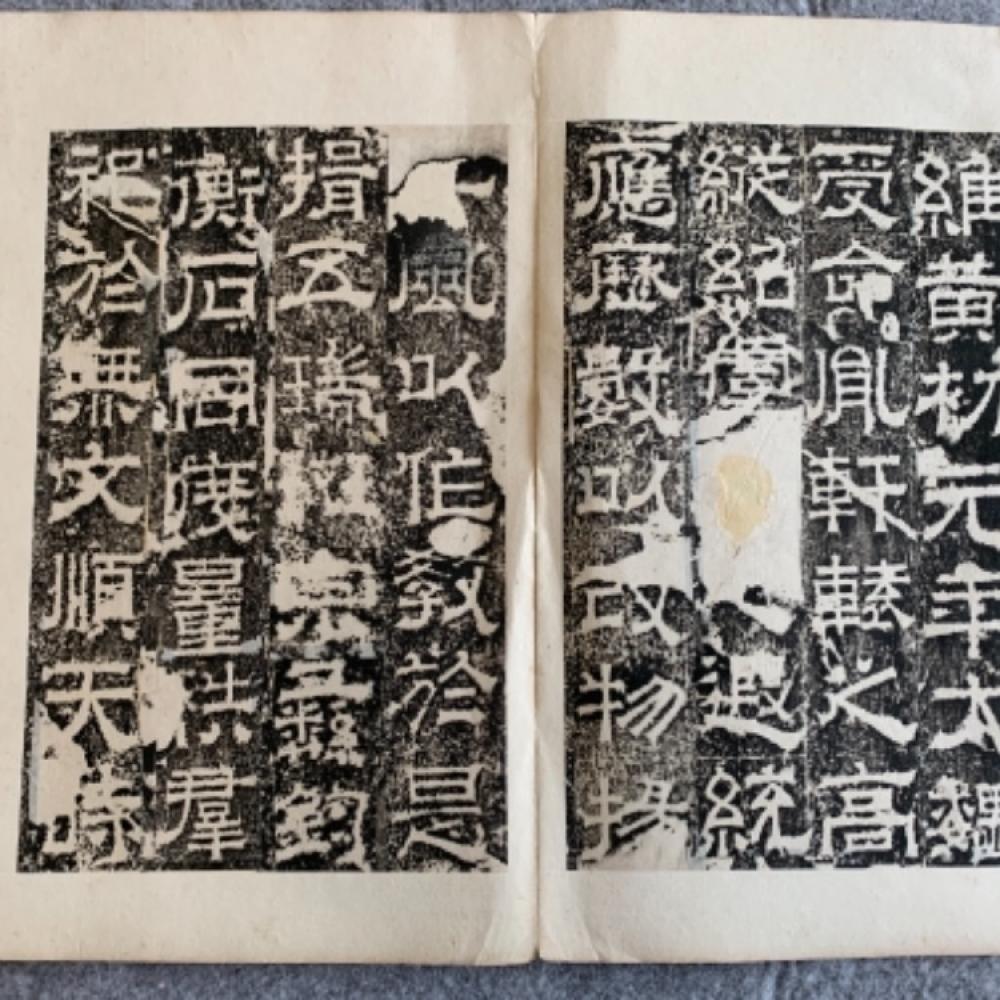 維黃初元年大魏
受命胤軒轅之高
縱紹虞遐統
應歷數以改物揚
風以作教於是
揖五瑞班宗彝鈞
衡石同度量秩羣
祀於無文順天時